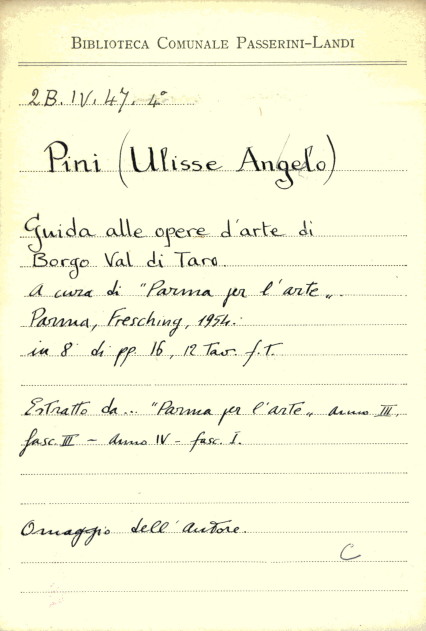 BIBLIOTECA COMUNALE PASSERINI-LANDI
2B.IV.47. 4°
Pini (Ulisse Angelo)
Guida alle opere d'arte di
Borgo Val di Taro
A cura di "Parma per l'arte„.
Parma, Fresching, 1954.
in 8° di pp. 16, 12 Tav. f.T.
Estratto da... "Parma per l'arte„ anno III,
fasc. III - anno IV - fasc. I.
Omaggio dell'autore.
C